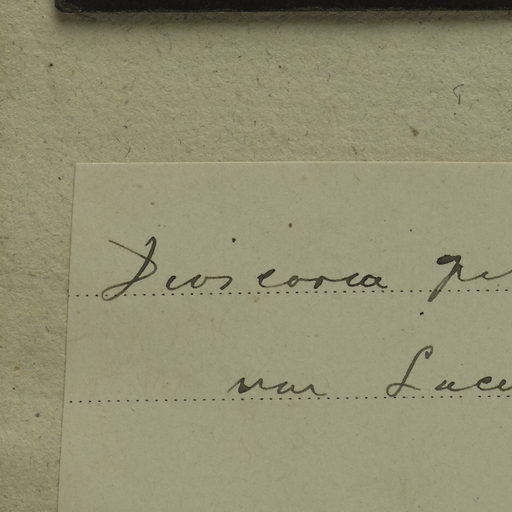 Dioscorea
var Luce